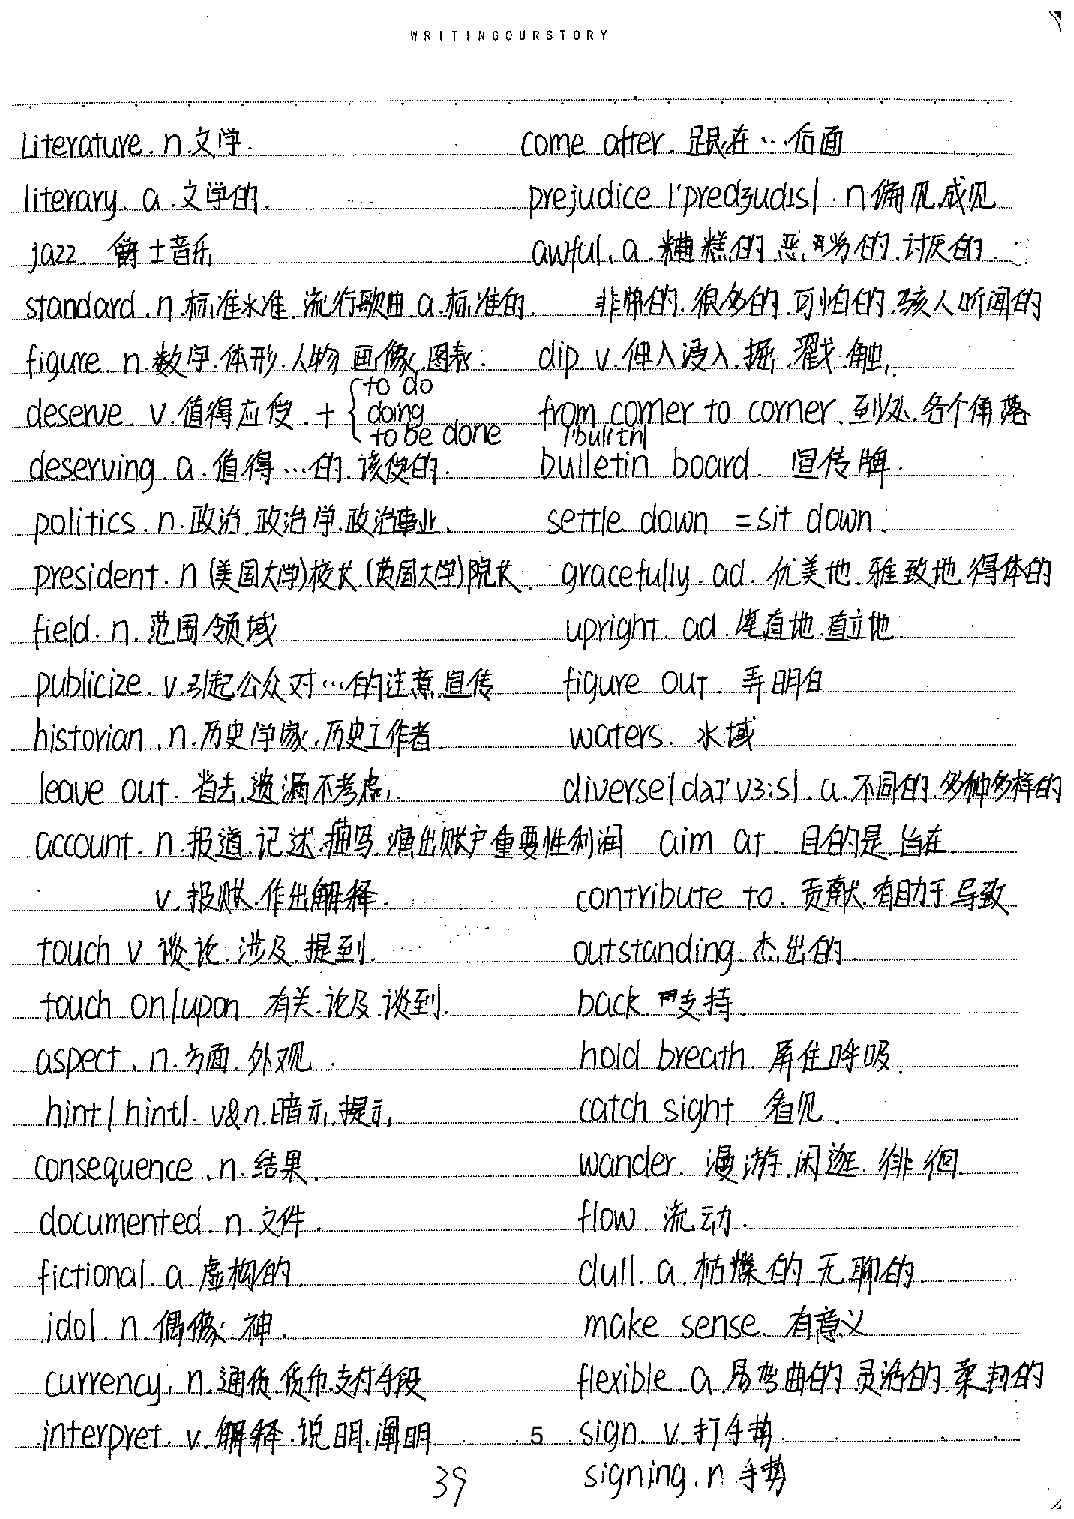 WRITINGOURSTORY
literature. n. 文学.
literary. a. 文学的.
jazz. 爵士音乐
standard. n. 标准水准. 流行歌曲 a. 标准的.
figure. n. 数字. 体形. 人物 画像. 图表.
deserve. v. 值得应受. + { to do
doing
to be done
deserving. a. 值得…的. 该受的.
politics. n. 政治. 政治学. 政治事业.
president. n (美国大学)校长 (英国大学)院长.
field. n. 范围 领域
publicize. v. 引起公众对…的注意. 宣传
historian. n. 历史学家. 历史工作者
leave out. 省去. 遗漏不考虑.
account. n. 报道. 记述. 描写. 演出账户重要性利润
v. 报账. 作出解释.
touch v 谈论. 涉及. 提到.
touch on/upon 有关. 论及. 谈到.
aspect. n. 方面. 外观.
hint /hint/. v&n. 暗示. 提示.
consequence. n. 结果.
documented. n. 文件.
fictional. a. 虚构的.
idol. n. 偶像. 神.
currency. n. 通货. 货币. 支付手段
interpret. v. 解释. 说明. 阐明
come after. 跟在…后面
prejudice /'predʒudɪs/. n 偏见 成见
awful. a. 糟糕的. 恶劣的. 讨厌的.
非常的. 很多的. 可怕的. 骇人听闻的
dip v. 伸入浸入. 掘. 戳. 触.
from corner to corner. 到处. 各个角落
/bulitn/
bulletin board. 宣传牌.
settle down = sit down.
gracefully. ad. 优美地. 雅致地. 得体的
upright. ad. 垂直地. 直立地
figure out. 弄明白
waters. 水域
diverse /daɪ'vɜ:s/. a. 不同的. 多种多样的
aim at. 目的是. 旨在.
contribute to. 贡献. 有助于. 导致
outstanding. 杰出的.
back. 支持.
hold breath. 屏住呼吸.
catch sight 看见.
wander. 漫游. 闲逛. 徘徊.
flow. 流动.
dull. a. 枯燥的. 无聊的.
make sense. 有意义
flexible. a. 易弯曲的. 灵活的. 柔韧的
sign. v. 打手势.
signing. n 手势
5
39